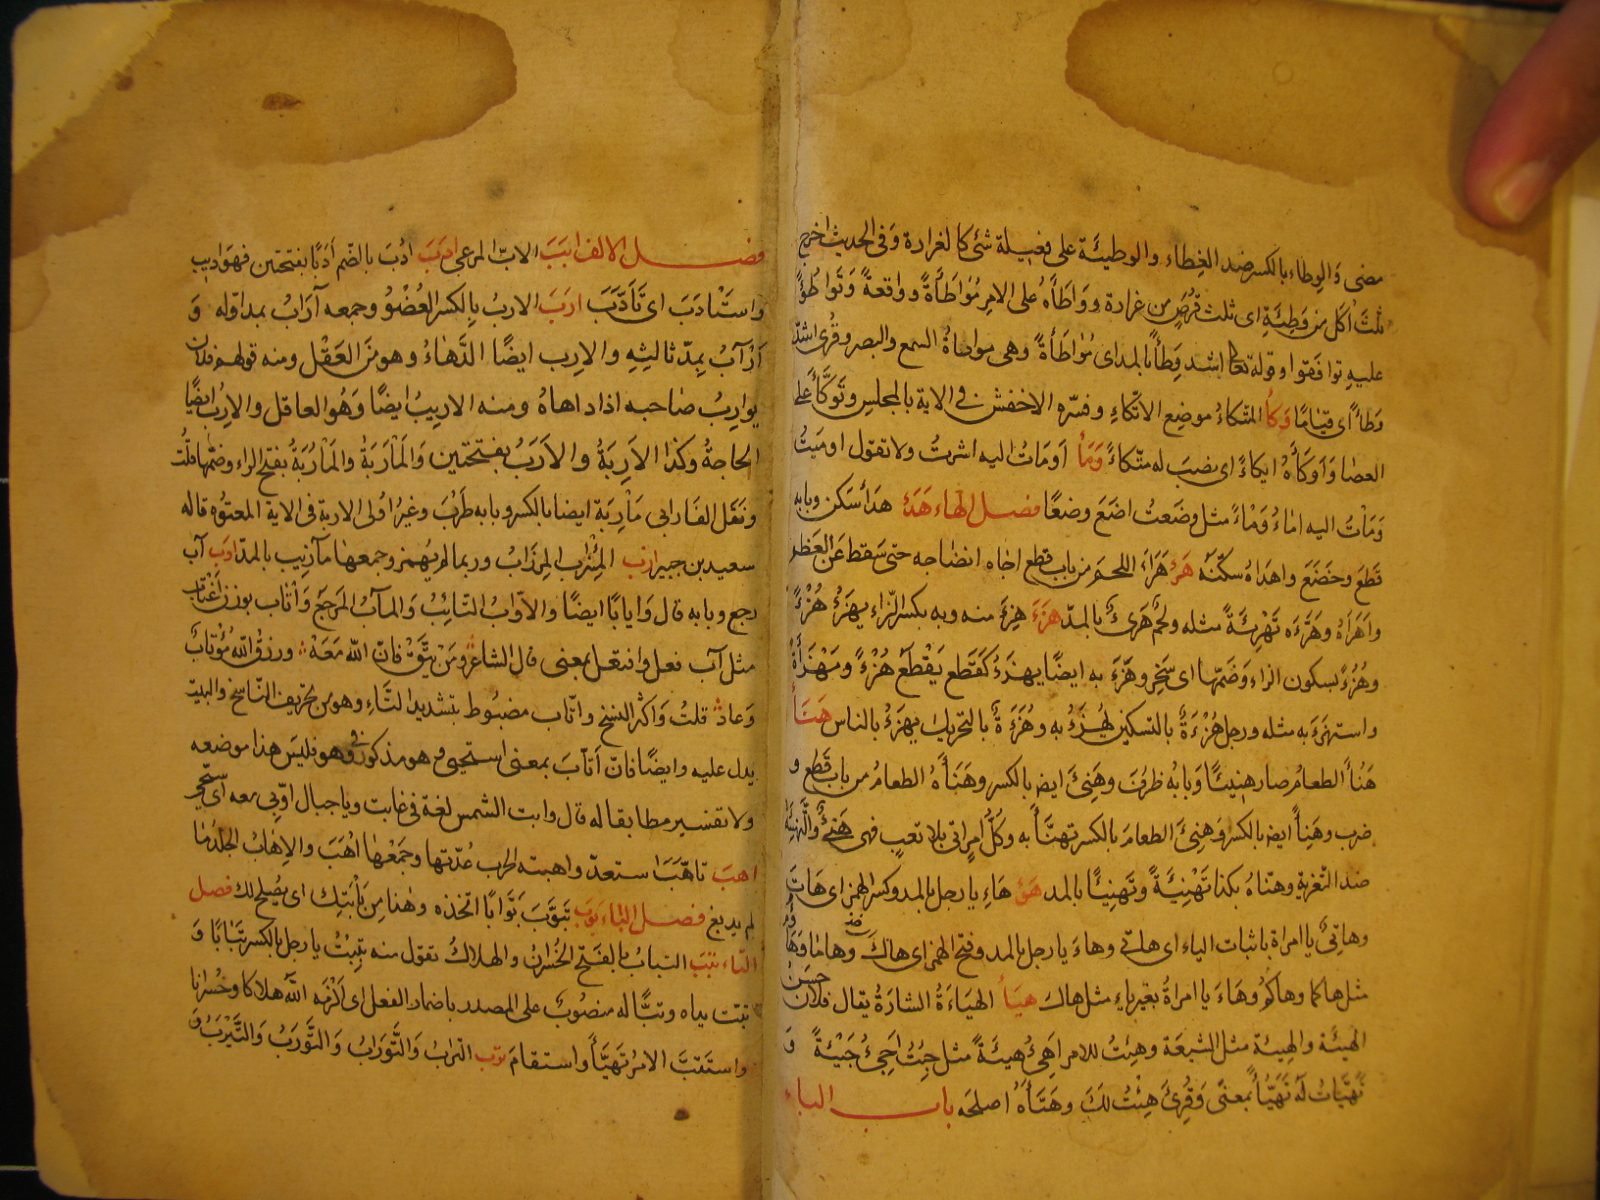 مضى وَالوِطاء بالكسر ضد الغِطاء والوطيئَة على فعيلة شئ كالغرارة وَفى الحديث اخرج
ثلثَ اُكَل من وَطِيئَةٍ اى ثلث قُرَصٍ من غرارة وواطَأهُ على الامر مُوَاطَأَةً ووافقهُ وَتَواطَؤُا
عليهِ توافقوا وقوله تعا اشد وِطَأً بالمد اى مُوَاطَأَةً وهى مواطاةُ السمع والبصر وقُرِئ اشدّ
وَطأً اى قيامًا وَكَأَ المتّكاءُ موضع الاتّكاءِ وفسّره الاخفش فى الاية بالمجلس وَتَوَكَّأَ على
العصا وَاَوكَأَهُ ايكاءً اى نصبَ له متّكاءً وَمَأَ اَومَاتُ اليه اشرتُ ولا تقول اوميتُ
وَمَاْتُ اليه امَاءُ وَمْاءً مثل وضَعتُ اضَعَ وضعًا فصل الهاء هَدَءَ هدَأ سَكن وبابه
قَطَعَ وخَضَعَ واهدَاهُ سكّنَه هَرَءَ هَرَاءَ اللحم من باب قطع اجاد انضاجه حتى سَقطَ عَن العَظم
واَهرَاهُ وهَرَّءَه تَهْرِئَةً مثله ولحم هَرِئٌ بالمدّ هَزَءَ هَزِءَ منه وبه بكسر الزاء يهزَءُ هُزْءً
وهُزُءً بسكون الزاء وَضمّها اى سَخِر وهَزَءَ به ايضًا يهزَءُ كَقَطع يَقْطَعُ هُزْءً وَمَهْزَأَةً
واستهزَءَ به مثله ورجل هُزْءَةٌ بالتسكين يُهزَءُ به وهُزَءَةٌ بالتحريك يهزَءُ بالناس هَنَأَ
هَنُأَ الطعامُ صار هنِيئًا وَبابُه ظرُفَ وهَنِئَ ايضا بالكسر وهَنَأَهُ الطعامُ من باب قَطع و
ضرب وهَنِأً ايضا بالكسر وَهنِئَ الطعامَ بالكسر تهنَّأَ به وكلُّ امرٍ اتى بلا تعبٍ فهو هَنِئٌ والتَّهنِئَة
ضد التّعزية وهنّاهُ بكذا تَهْنِئَةً وتَهنِيئًا بالمد هَوَءَ هَاءِ يا رجل بالمد وكسر الهمز اى هَاتَ
وهائىِ يا امراة باثبات الياء اى هاتى وهاءَ يا رجل بالمد وفتح الهمز اى هاكَ وهاءمَا وَهَاؤُم
مثل هاكما وهاكُم وَهَاءَ يا امراةُ بغير ياءٍ مثل هاك هيَأَ الهيَاءَةُ الشارَةُ يقال فلان حسَنُ
الهيئَة والهِيئة مثل الشيعَة وهِئتُ للامر اَهِئُ هيئَةً مثل جِئتُ اَجِئُ جَيْئَةً وَ
تَهيَّاتُ لَهُ تَهَيُّأً بمعنًى وَقُرِئَ هِئتُ لكَ وهَيّأَهُ اصلحَه باب الباء
فصل الالف ابَبَ الابّ المرعى ادَبَ ادُبَ بالضّم اَدَبًا بفتحتين فهوَ اديب
واستَاْدَبَ اى تَاَدَّبَ ارَبَ الارب بالكسر العُضْوُ وجمعه آرَابٌ بمدّ اوّله وَ
اَرْآبٌ بمدّ ثالِثِهِ والارِب ايضًا الدَّهاءُ وهو منَ العَقْل ومنه قولهم فلان
يوارِبُ صَاحبه اذا داهاهُ ومنه الاريبُ ايضًا وَهُوَ العاقل والارِبُ ايضًا
الحاجةُ وكذا الارِبَةُ والاَرَبُ بفتحتين وَالمَاْرَبَةُ والمَاْرُبَةُ بفتح الراءِ وضمّها قلتُ
ونقَل الفارابى مَاْرِبَة ايضا بالكسر وبابه طرَبَ وغيرُ اولى الاربة فى الاية المعتوُه قاله
سعيد بن جبير ازب المِئْزاب المِرزَابُ وربما لم يُهمز وجمعها مآزيب بالمدّ اوَب آب
رجع وبابه قال وَايابًا ايضًا والاَوّابُ التَائِبُ والمآبُ المَرجَع وَأتابَ بوزن اَغتَابَ
مثل آبَ فعل وافتعل بمعنى قال الشاعرُ ومَنْ يتَّقْ فانّ اللّهَ مَعَهْ ورزقُ اللّه مُؤتَابٌ
وَعادِ قلتُ وَاكثر النسخ واتّاب مضبُوط بتشديد التَاءِ وهو من تحريف النّاسخ والبيت
يدل عليه وايضًا فانّ اَتْأَبَ بمعنى استحيى وهو مذكور فى وهو فليسَ هذا موضعه
ولا تفسيره مطابقا له قال وابت الشمس لغة فى غابت ويا جبال اوّبى معه اى سبّحى
اهبَ تاهّبَ استعدّ واهبته الحرب عُدّتها وجمعها اهَبَ والاِهابُ الجلد ما
لم يدبغ فصل الباء بَوبَ تَبوَّبَ بَوّابًا اتّخذه وهذا من بَابتِك اى يصلح لك فصل
التاء تبَبَ التبابُ بالفَتح الخُسْرَانُ والهلاكُ تقول منه تَبِبْتُ يا رجل بالكسر تَبَابًا وَ
تبّت يداه وتبًّا له منصُوبٌ على المصدر باضمار الفعل اى اَلزَمَه اللّهُ هلاكا وخُسْرانا
واستَتَبَّ الامرُ تَهَيَّأَ واستقامَ ترب التراب وَالتَّورَابُ وَالتَّورَبُ وَالتَّيرَبُ وَ